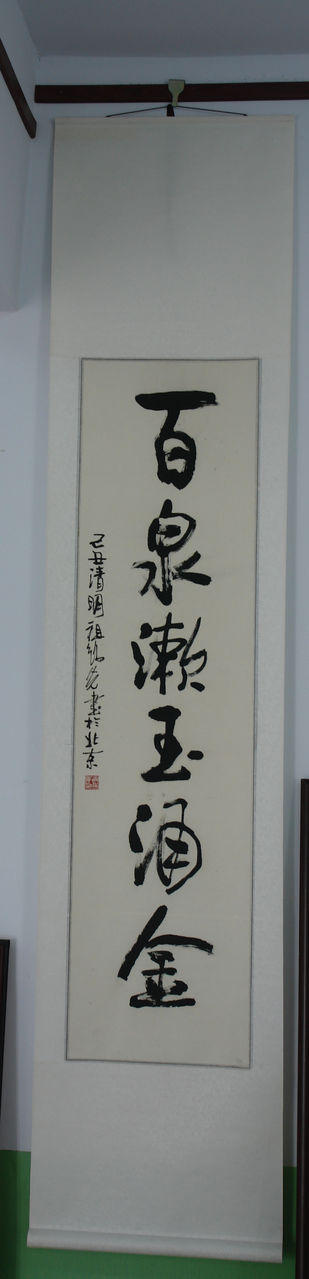 百泉漱玉涌金
己丑清明祖 书於北京